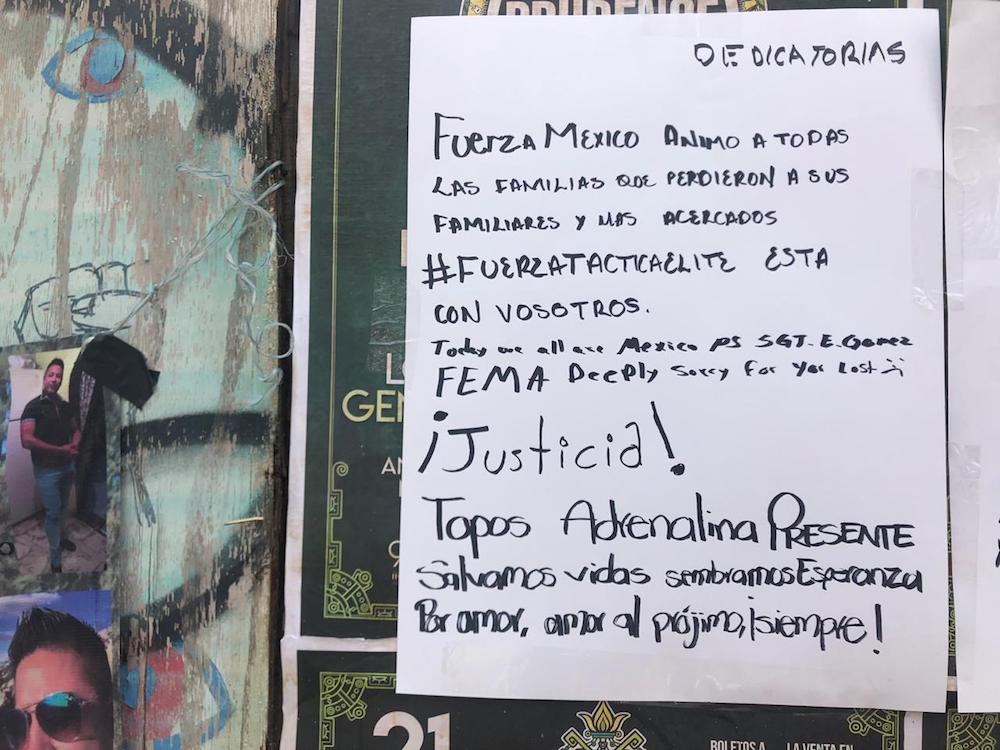 PRUDENCE
DEDICATORIAS
FUERZA MEXICO ANIMO A TODAS
LAS FAMILIAS QUE PERDIERON A SUS
FAMILIARES Y MAS ACERCADOS
#FUERZATACTICAELITE ESTA
CON VOSOTROS.
Today we all are Mexico PS SGT. E. Gomez
FEMA DeePly Sorry For You Lost
¡Justicia!
Topos Adrenalina PRESENTE
Salvamos vidas sembramos Esperanza
Por amor, amor al prójimo, ¡siempre!
GEN
21
BOLETOS A
LA VENTA EN